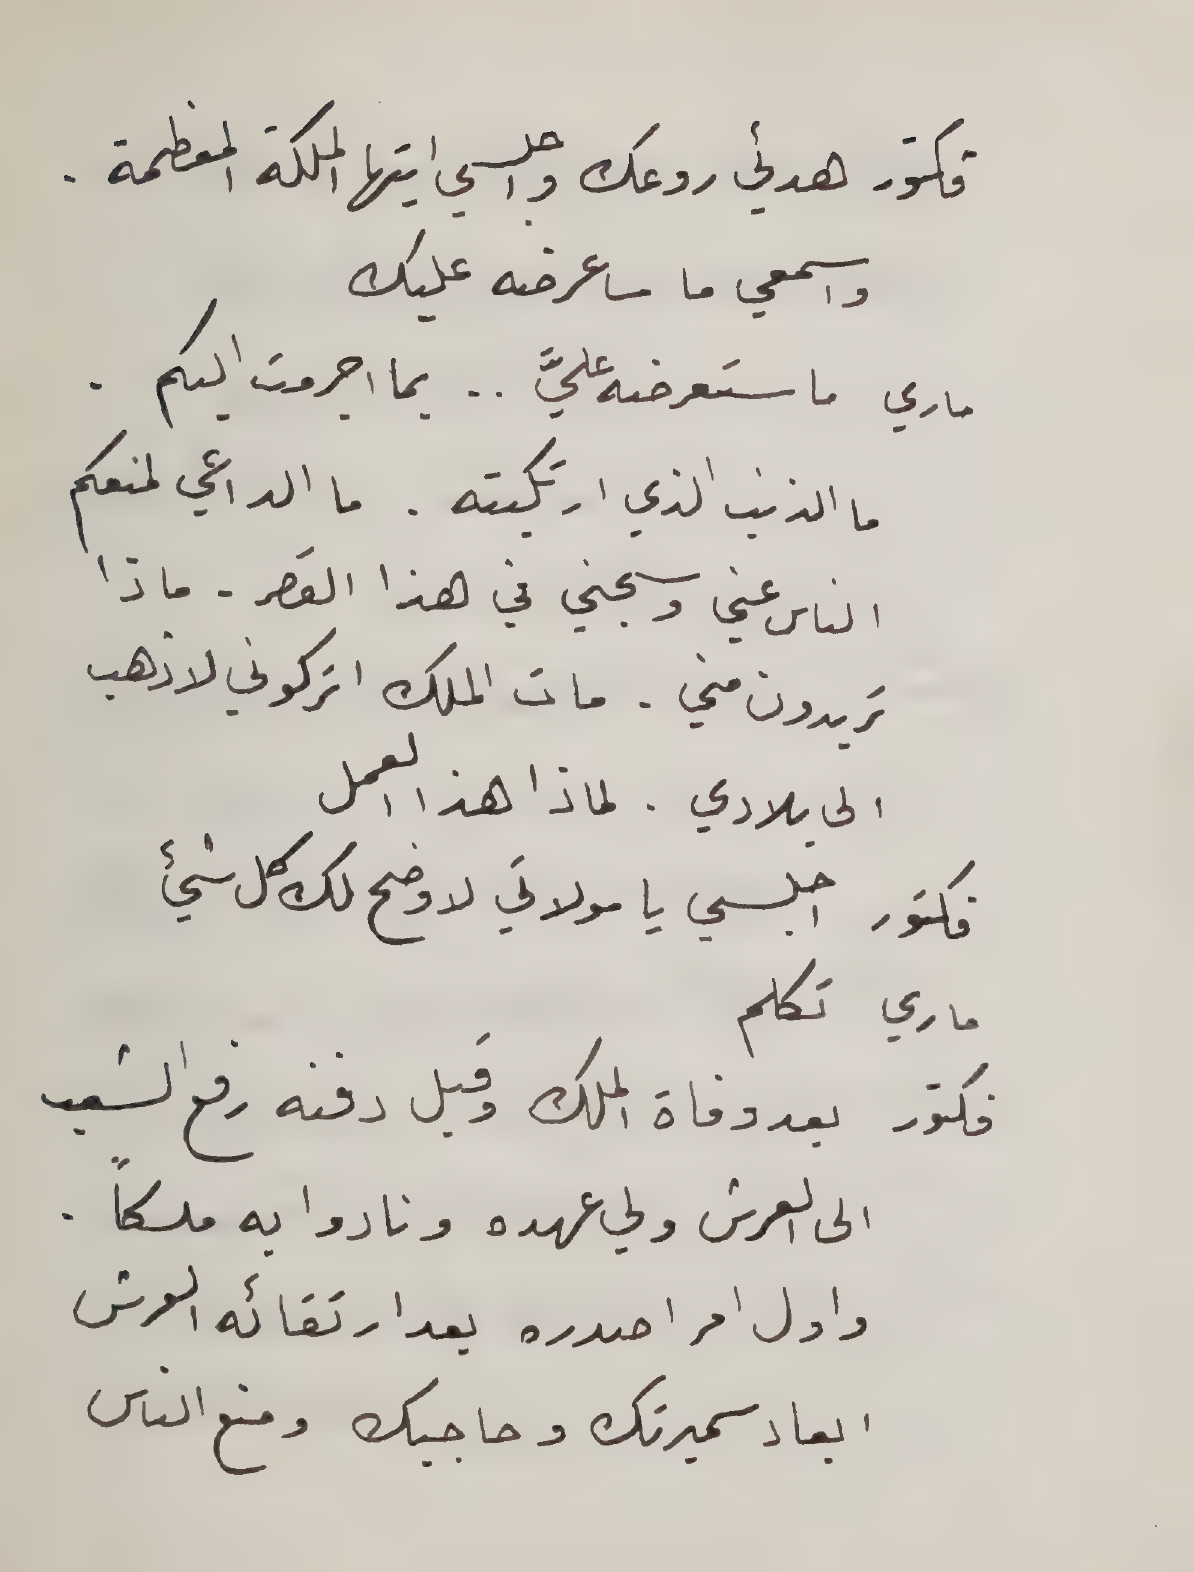 فكتور هدئي روعك واجلسي ايتها الملكة المعظمة .
واسمعي ما ساعرضه عليك
ماري ما ستعرضه عليَّ .. بما اجرمت اليكم .
ما الذنب الذي ارتكبته . ما الداعي لمنعكم
الناس عني وسجني في هذا القصر - ماذا
تريدون مني . مات الملك اتركوني لاذهب
الى بلادي . لماذا هذا العمل
فكتور اجلسي يا مولاتي لاوضح لك كل شيئ
ماري تكلم
فكتور بعد وفاة الملك وقبل دفنه رفع الشعب
الى العرش ولي عهده ونادوا به ملكاً .
واول امر اصدره بعد ارتقائه العرش
ابعاد سميرتك وحاجبك ومنع الناس